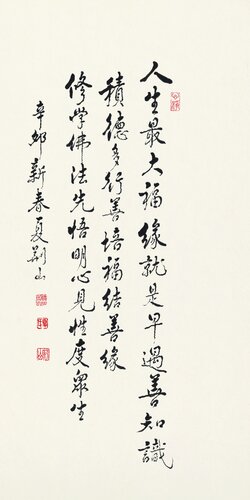 人生最大福緣就是早遇善知識
積德多行善培福結善緣
修学佛法先悟明心見性度衆生
辛卯新春夏荆山